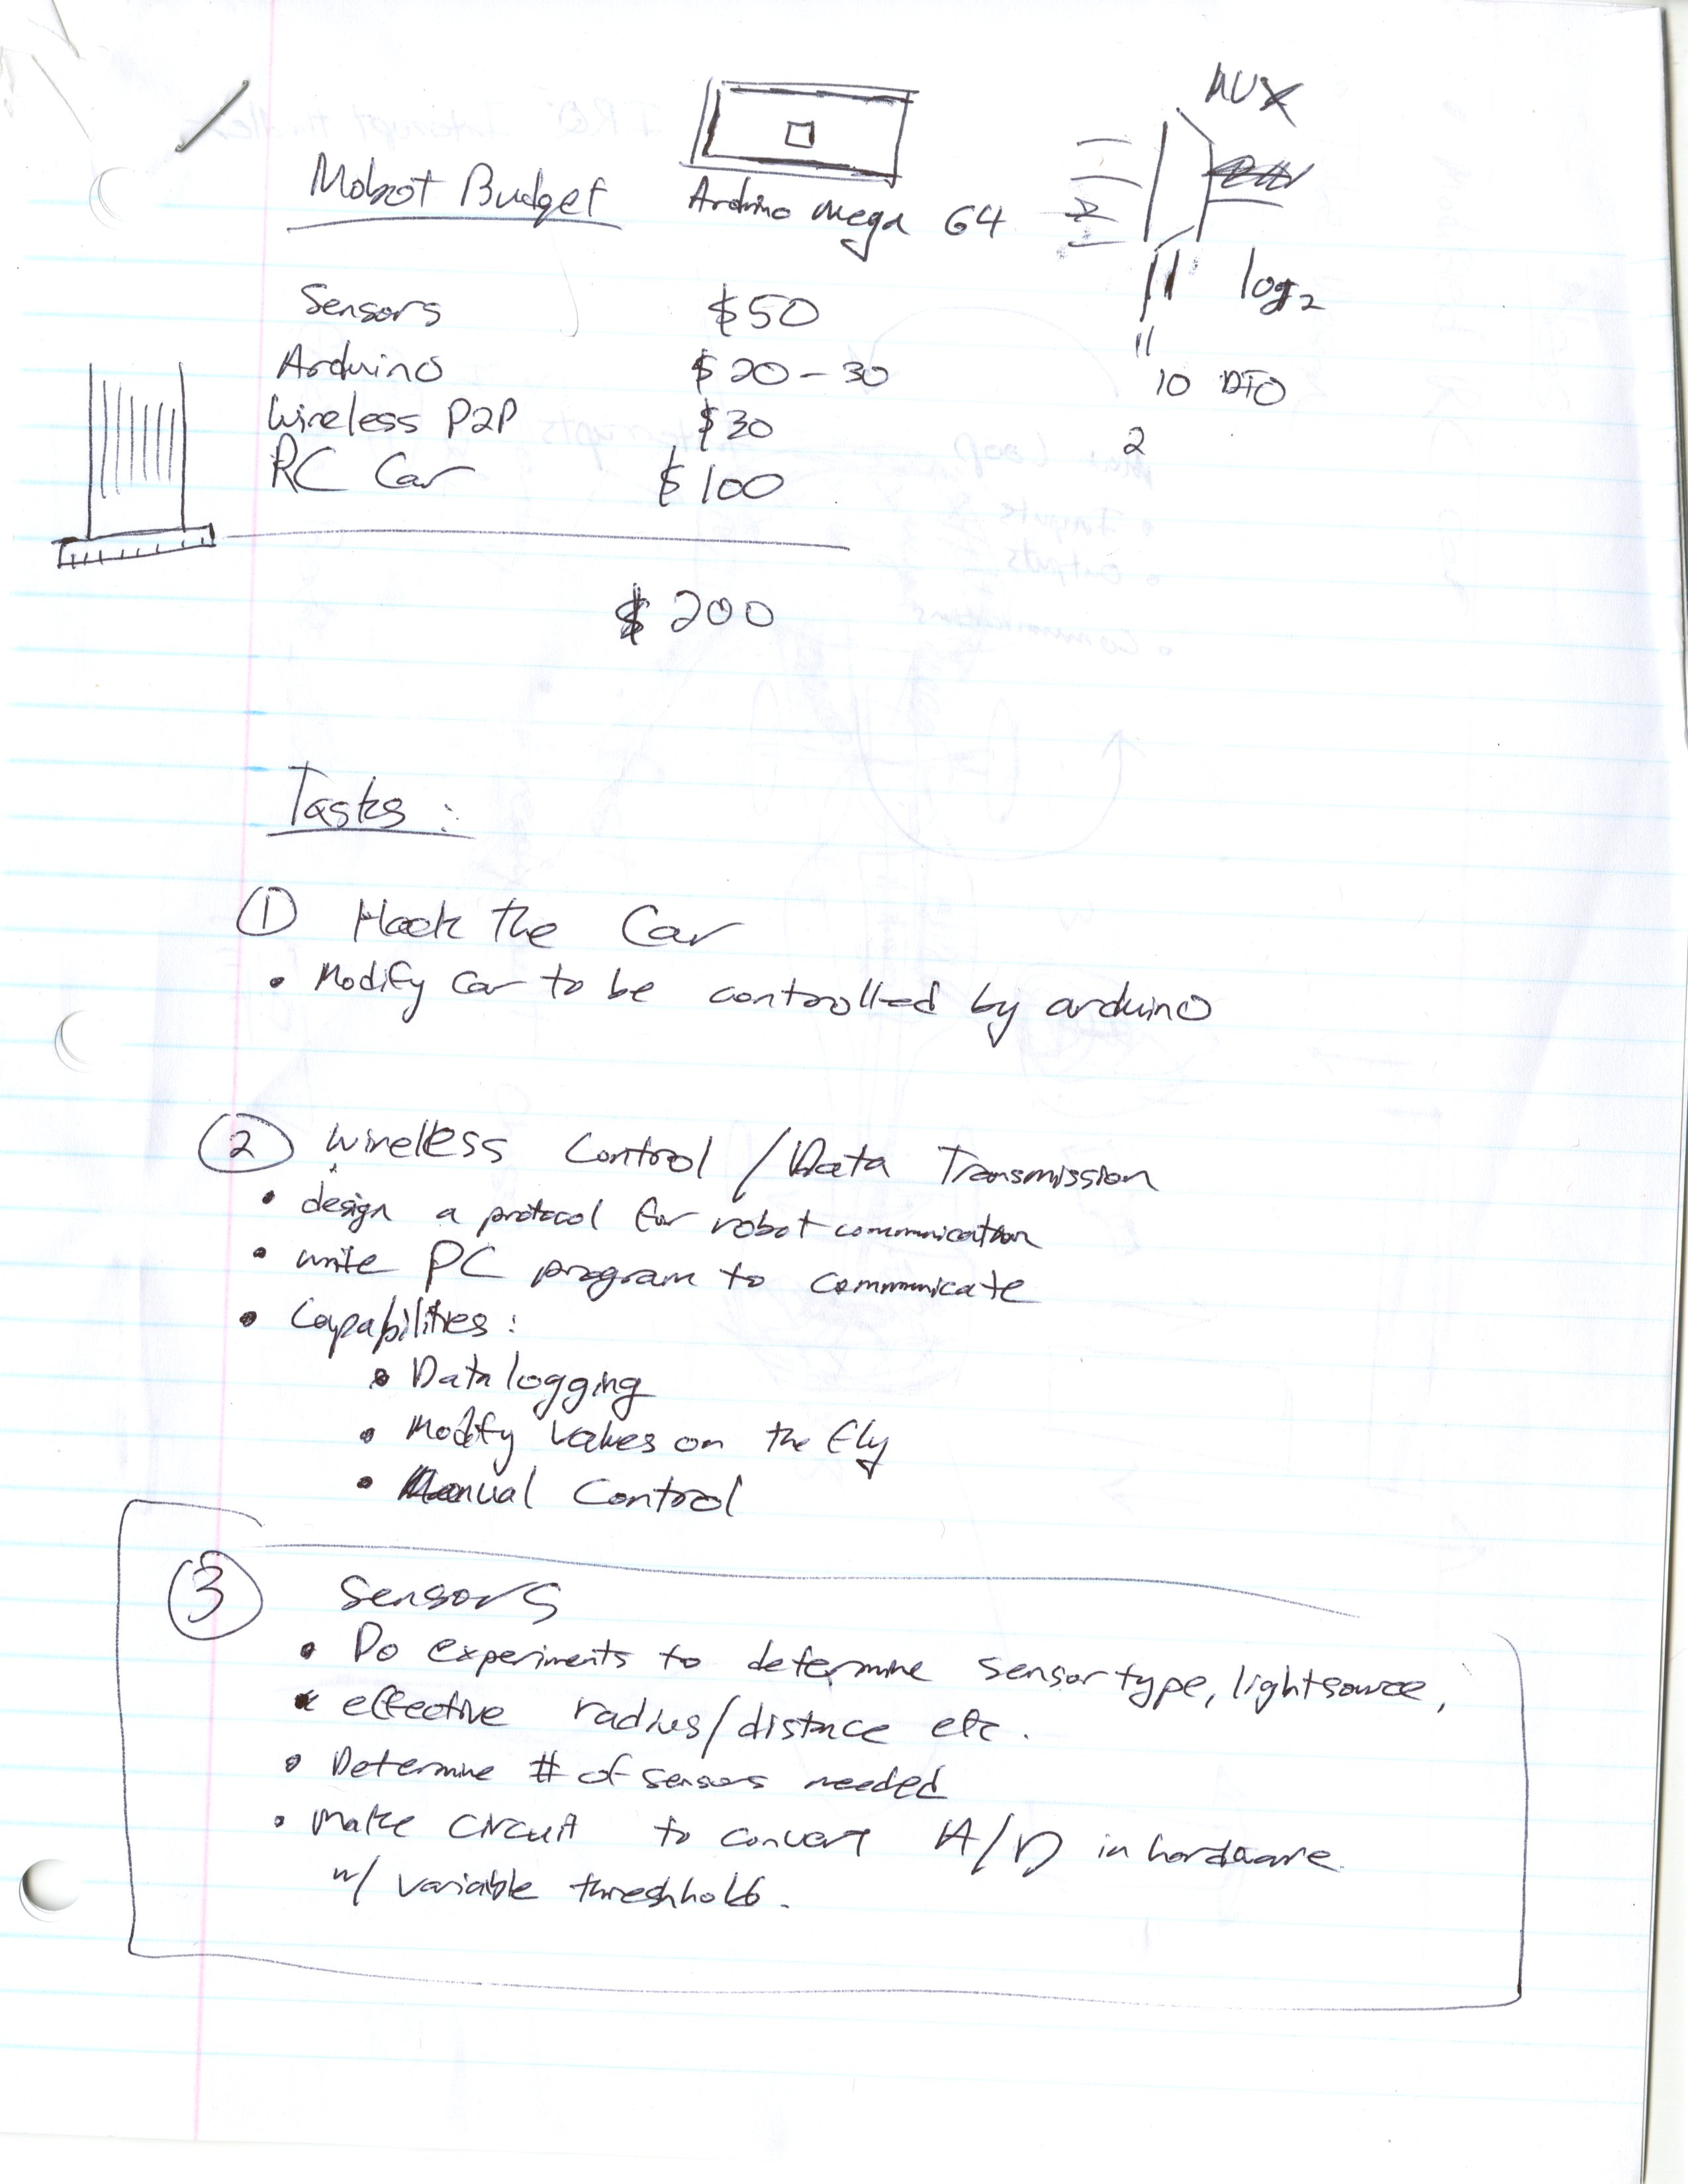 MUX
Mobot Budget
Arduino Mega 64
log2
Sensors $50
Arduino $20-30
10 DIO
Wireless P2P $30
2
RC Car $100
$200
Tasks:
① Hack the Car
• Modify car to be controlled by arduino
② Wireless Control / Data Transmission
• design a protocol for robot communication
• write PC program to communicate
• Capabilities:
• Data logging
• Modify values on the fly
• Manual Control
③ Sensors
• Do experiments to determine sensor type, lightsource,
• effective radius/distance etc.
• Determine # of sensors needed
• Make circuit to convert A/D in hardware
w/ variable threshholds.